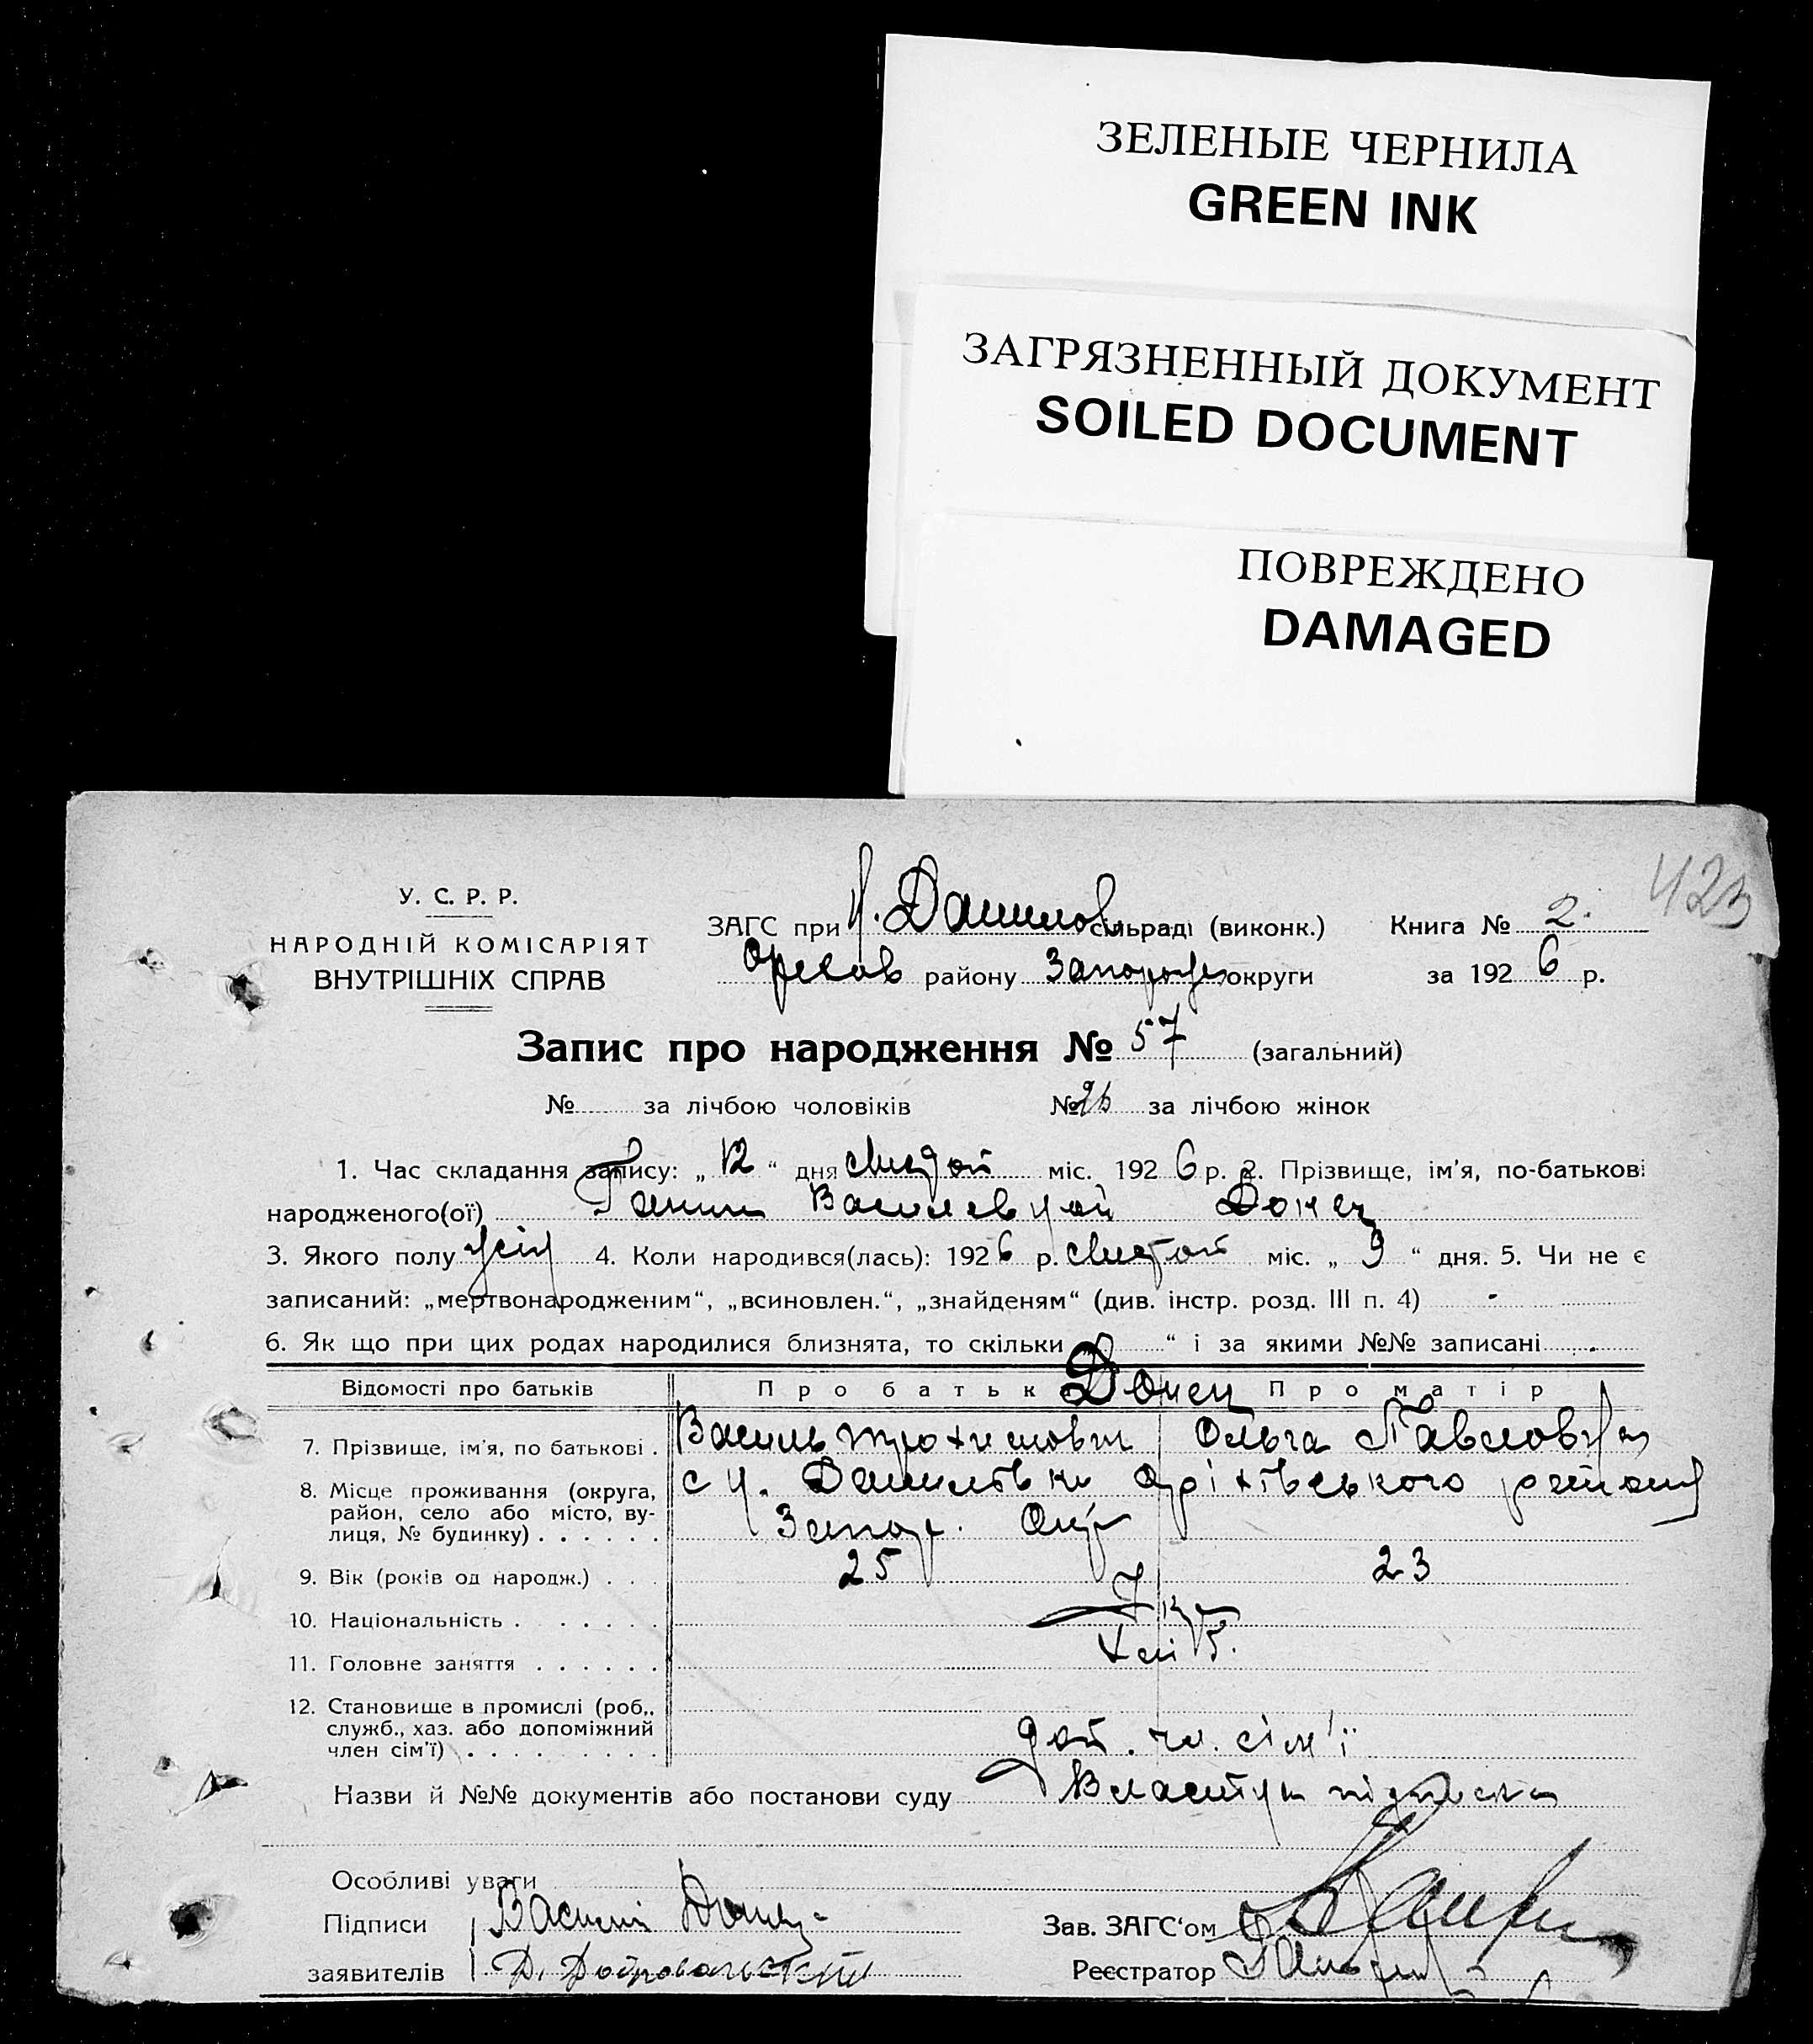 ЗЕЛЕНЫЕ ЧЕРНИЛА
GREEN INK
ЗАГРЯЗНЕННЫЙ ДОКУМЕНТ
SOILED DOCUMENT
ПОВРЕЖДЕНО
DAMAGED
423
У. С. Р. Р.
НАРОДНІЙ КОМІСАРІЯТ
ВНУТРІШНІХ СПРАВ
ЗАГС при Н. Данилов сільраді (виконк.) Книга № 2.
Орехов району Запорож округи за 1926 р.
Запис про народження № 57 (загальний)
№ за лічбою чоловіків № 26 за лічбою жінок
1. Час складання запису: „ 12 “ дня міс. 1926 р. 2. Прізвище, ім'я, по-батькові
народженого(ої) Донец
3. Якого полу жін 4. Коли народився(лась): 1926 р. міс. „ 9 “ дня. 5. Чи не є
записаний: „мертвонародженим“, „всиновлен.“, „знайденям“ (див. інстр. розд. III п. 4) -
6. Як що при цих родах народилися близнята, то скільки “ і за якими №№ записані
Відомості про батьків Про батьк Про матір
Донец
7. Прізвище, ім'я, по батькові . Василь Трохимович Ольга Павловна
8. Місце проживання (округа, район, село або місто, вулиця, № будинку) с Н. Данилівки Оріхівського району
Запор. Окр
9. Вік (років од народж.) . . . 25 23
10. Національність . . . . . . . Укр
11. Головне заняття . . . . . . Хліб.
12. Становище в промислі (роб., служб., хаз. або допоміжний член сім'ї) . . . . . . . . . чл. сім'ї
Назви й №№ документів або постанови суду Властна підписка
Особливі уваги
Підписи Донец Зав. ЗАГС'ом
заявителів Д. Добровольский Реєстратор